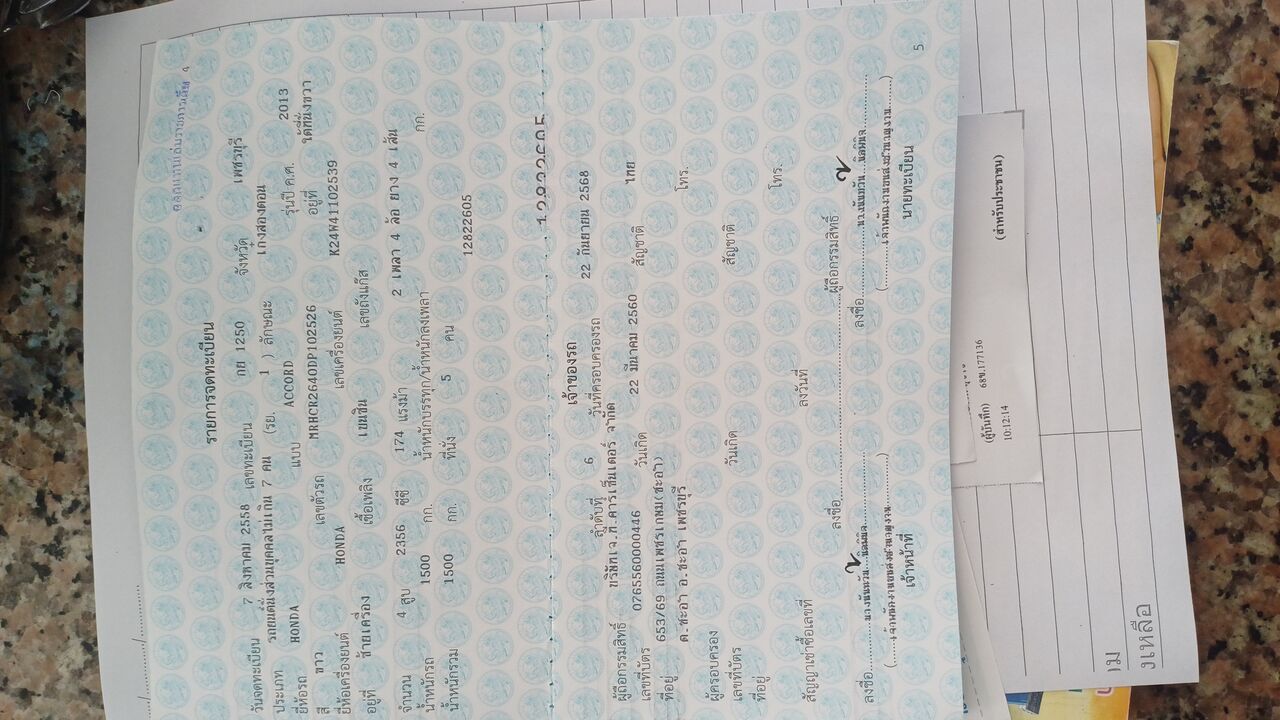 4
รายการจดทะเบียน
วันจดทะเบียน 7 สิงหาคม 2558 เลขทะเบียน กย 1250 จังหวัด เพชรบุรี
ประเภท รถยนต์นั่งส่วนบุคคลไม่เกิน 7 คน (รย. 1 ) ลักษณะ เก๋งสองตอน
ยี่ห้อรถ HONDA แบบ ACCORD รุ่นปี ค.ศ. 2013
สี ขาว เลขตัวรถ MRHCR2640DP102526 อยู่ที่ ใต้ที่นั่งขวา
ยี่ห้อเครื่องยนต์ HONDA เลขเครื่องยนต์ K24W41102539
อยู่ที่ ซ้ายเครื่อง เชื้อเพลิง เบนซิน เลขถังแก๊ส
จำนวน 4 สูบ 2356 ซีซี 174 แรงม้า 2 เพลา 4 ล้อ ยาง 4 เส้น
น้ำหนักรถ 1500 กก. น้ำหนักบรรทุก/น้ำหนักลงเพลา กก.
น้ำหนักรวม 1500 กก. ที่นั่ง 5 คน 12822605
12822605
เจ้าของรถ
ลำดับที่ 6 วันที่ครอบครองรถ 22 กันยายน 2568
ผู้ถือกรรมสิทธิ์ บริษัทเจ.ที.คาร์เซ็นเตอร์ จำกัด
เลขที่บัตร 0765560000446 วันเกิด 22 มีนาคม 2560 สัญชาติ ไทย
ที่อยู่ 653/69 ถนนเพชรเกษม(ชะอำ)
ต.ชะอำ อ.ชะอำ เพชรบุรี โทร.
ผู้ครอบครอง
เลขที่บัตร วันเกิด สัญชาติ
ที่อยู่
โทร.
สัญญาเช่าซื้อเลขที่ ลงวันที่
ลงชื่อ ผู้ถือกรรมสิทธิ์
ลงชื่อ ลงชื่อ
เจ้าหน้าที่ นายทะเบียน
5
(ผู้บันทึก) 68ข.177136
10:12:14 (สำหรับประชาชน)